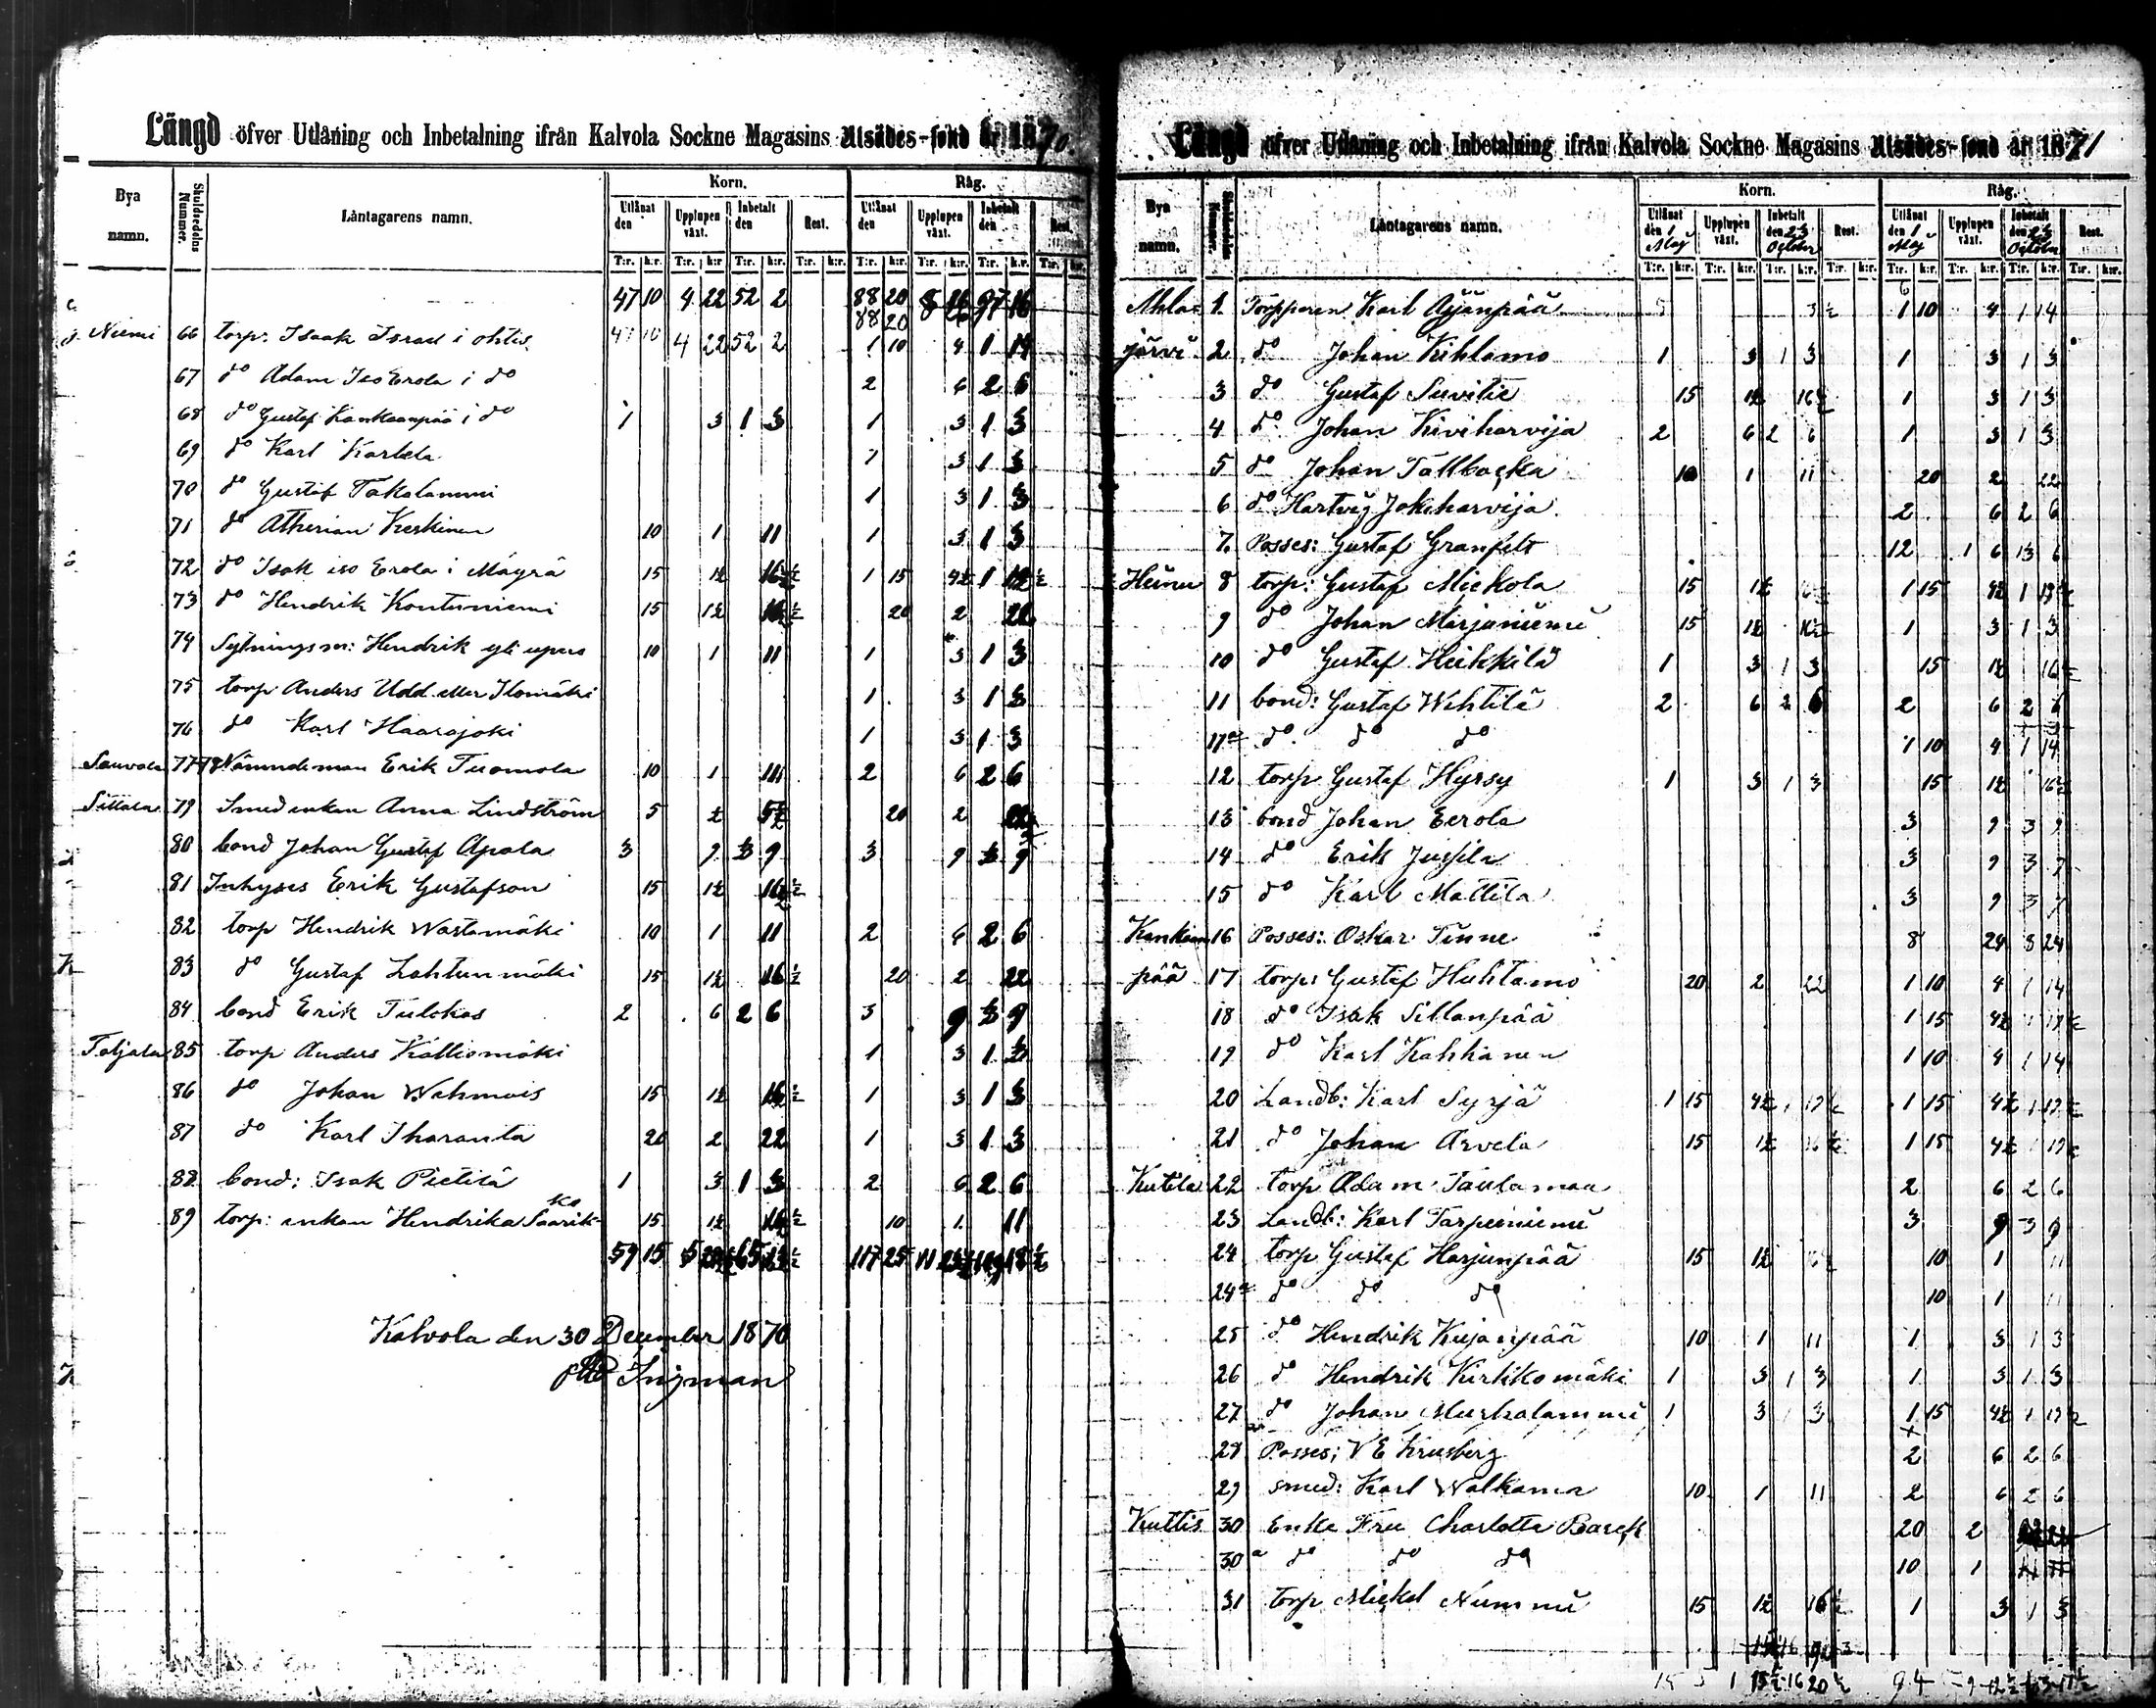 Längd öfver Utlåning och Inbetalning ifrån Kalvola Sockne Magasins Utsädes-fond år 1870.
Korn. Råg.
Bya namn. Skuldsedelns Nummer. Låntagarens namn. Utlånat den Upplupen växt. Inbetalt den Rest. Utlånat den Upplupen växt. Inbetalt den Rest.
T:r. k:r. T:r. k:r T:r. k:r. T:r. k:r. T:r. k:r. T:r. k:r. T:r. k:r. T:r. k:r.
47 10 4 22 52 2 88 20 8 26 97 16
88 20
Niemi 66 torp: Isaak Israel i ohtis 47 10 4 22 52 2 1 10 4 1 14
67 do Adam Iso Erola i do 2 6 2 6
68 do Gustaf Kankaanpää i do 1 3 1 3 1 3 1 3
69 do Karl Karlela 1 3 1 3
70 do Gustaf Takalammi 1 3 1 3
71 do Atherian Keskinen 10 1 11 1 3 1 3
72 do Isak iso Erola i Mäyrä 15 1½ 16½ 1 15 4½ 1 19½
73 do Hendrik Kontuniemi 15 1½ 16½ 20 2 22
74 Sytningsm: Hendrik yli 10 1 11 1 3 1 3
75 torp Anders Udd eller Ilomäki 1 3 1 3
76 do Karl Haarajoki 1 3 1 3
Sauvala 77-78 Nämndeman Erik Tuomola 10 1 11 2 6 2 6
Sittala 79 Smedenkan Anna Lindström 5 ½ 5½ 20 2 22
80 bond Johan Gustaf Apola 3 9 3 9 3 9 3 9
81 Inhyses Erik Gustafson 15 1½ 16½
82 torp Hendrik Wastamäki 10 1 11 2 6 2 6
83 do Gustaf Lahtunmäki 15 1½ 16½ 20 2 22
84 bond Erik Tulokas 2 6 2 6 3 9 3 9
Taljala 85 torp Anders Kalliomäki 1 3 1 3
86 do Johan Wahmais 15 1½ 16½ 1 3 1 3
87 do Karl Iharanta 20 2 22 1 3 1 3
88 bond: Isak Pietilä 1 3 1 3 2 6 2 6
89 torp: enkan Hendrika Saarik-ko 15 1½ 16½ 10 1 11
59 15 5 65 117 25 11
Kalvola den 30 December 1870
Ingman
Längd öfver Utlåning och Inbetalning ifrån Kalvola Sockne Magasins Utsädes-fond år 1871
Korn. Råg.
Bya namn. Skuldsedelns Nummer. Låntagarens namn. Utlånat den 1 Maj Upplupen växt. Inbetalt den 23 October Rest. Utlånat den 1 Maj Upplupen växt. Inbetalt den 23 October Rest.
T:r. k:r. T:r. k:r. T:r. k:r. T:r. k:r. T:r. k:r. T:r. k:r. T:r. k:r. T:r. k:r.
Ahla- 1. Torpparen Karl Äijänpää 1 10 4 1 14
järvi 2 do Johan Kihlamo 1 3 1 3 1 3 1 3
3 do Gustaf Suvitie 15 1½ 16½ 1 3 1 3
4 do Johan Kiviharvija 2 6 2 6 1 3 1 3
5 do Johan Tallbacka 10 1 11 20 2 22
6 do Hartvig Jokiharvija 2 6 2 6
7. Posses: Gustaf Granfelt 12 1 6 13 6
Heinu 8 torp: Gustaf Mickola 15 1½ 16½ 1 15 4½ 1 19½
9 do Johan Marjaniemi 15 1½ 16½ 1 3 1 3
10 do Gustaf Heikkilä 1 3 1 3 15 1½ 16½
11 bond: Gustaf Wihtilä 2 6 2 6 2 6 2 6
11a do do do 1 10 4 1 14
12 torp Gustaf Hyrsy 1 3 1 3 15 1½ 16½
13 bond Johan Eerola 3 9 3 9
14 do Erik Jussila 3 9 3 9
15 do Karl Mattila 3 9 3 9
Kankaan 16 Posses: Oskar Tinne 8 24 8 24
pää 17 torp: Gustaf Huhtamo 20 2 22 1 10 4 1 14
18 do Isak Sillanpää 1 15 4½ 1 19½
19 do Karl Kahhanen 1 10 4 1 14
20 Landb: Karl Syrjä 1 15 4½ 1 19½ 1 15 4½ 1 19½
21 do Johan Arvela 15 1½ 16½ 1 15 4½ 1 19½
Kutila 22 torp Adam Taulamaa 2 6 2 6
23 Landb: Karl Tarpiniemi 3 9 3 9
24 torp Gustaf Harjunpää 15 1½ 16½ 10 1 11
24a do do do 10 1 11
25 do Hendrik Kujanpää 10 1 11 1 3 1 3
26 do Hendrik Kirkkomäki 1 3 1 3 1 3 1 3
27 do Johan Mustalammi 1 3 1 3 1 15 4½ 1 19½
28 Posses; V E Krusberg 2 6 2 6
29 smed: Karl Walkama 10 1 11 2 6 2 6
Kuttis 30 Enke Fru Charlotta Barck 20 2 22
30a do do do 10 1 11
31 torp Mickel Nummi 15 1½ 16½ 1 3 1 3
94